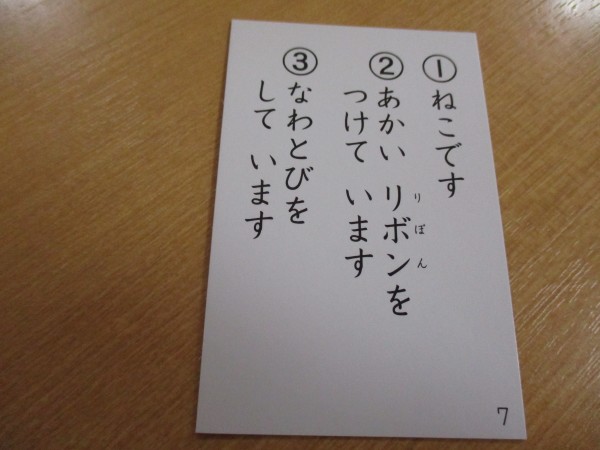 ①ねこです
②あかい リボンを
りぼん
つけて います
③なわとびを
して います
7